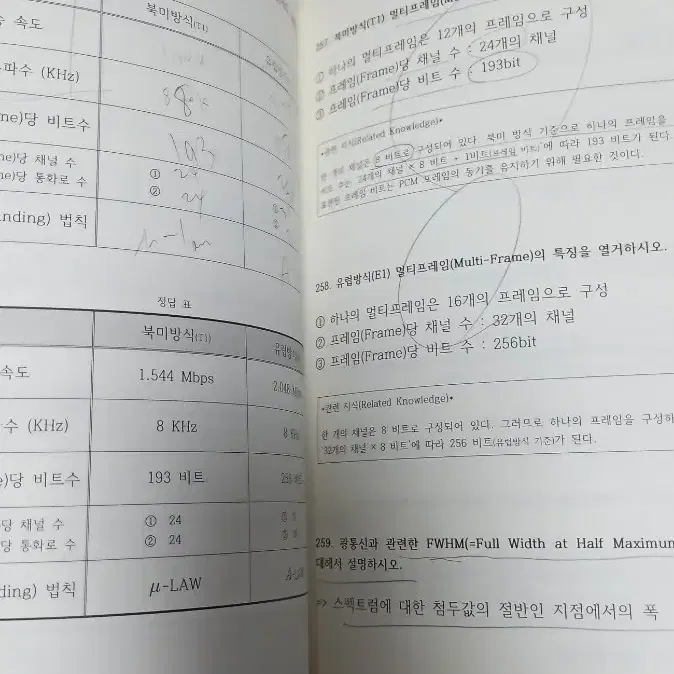 북미방식(T1)
속도
파수 (KHz)
me)당 비트수
193
me)당 채널 수
me)당 통화로 수
① 24
② 24
anding) 법칙
정답 표
북미방식(T1)
유럽방식
속도
1.544 Mbps
수 (KHz)
8 KHz
8 KHz
e)당 비트수
193 비트
256 비트
당 채널 수
당 통화로 수
① 24
② 24
ding) 법칙
μ-LAW
257. 북미방식(T1) 멀티프레임
① 하나의 멀티프레임은 12개의 프레임으로 구성
② 프레임(Frame)당 채널 수 : 24개의 채널
③ 프레임(Frame)당 비트 수 : 193bit
•관련 지식(Related Knowledge)•
한 개의 채널은 8 비트로 구성되어 있다. 북미 방식 기준으로 하나의 프레임을
비트 수는 '24개의 채널 × 8 비트 + 1비트(프레임 비트)'에 따라 193 비트가 된다.
프레임 비트는 PCM 프레임의 동기를 유지하기 위해 필요한 것이다.
258. 유럽방식(E1) 멀티프레임(Multi-Frame)의 특징을 열거하시오.
① 하나의 멀티프레임은 16개의 프레임으로 구성
② 프레임(Frame)당 채널 수 : 32개의 채널
③ 프레임(Frame)당 비트 수 : 256bit
•관련 지식(Related Knowledge)•
한 개의 채널은 8 비트로 구성되어 있다. 그러므로 하나의 프레임을 구성하
'32개의 채널 × 8 비트'에 따라 256 비트(유럽방식 기준)가 된다.
259. 광통신과 관련한 FWHM(=Full Width at Half Maximum
대해서 설명하시오.
=> 스펙트럼에 대한 첨두값의 절반인 지점에서의 폭